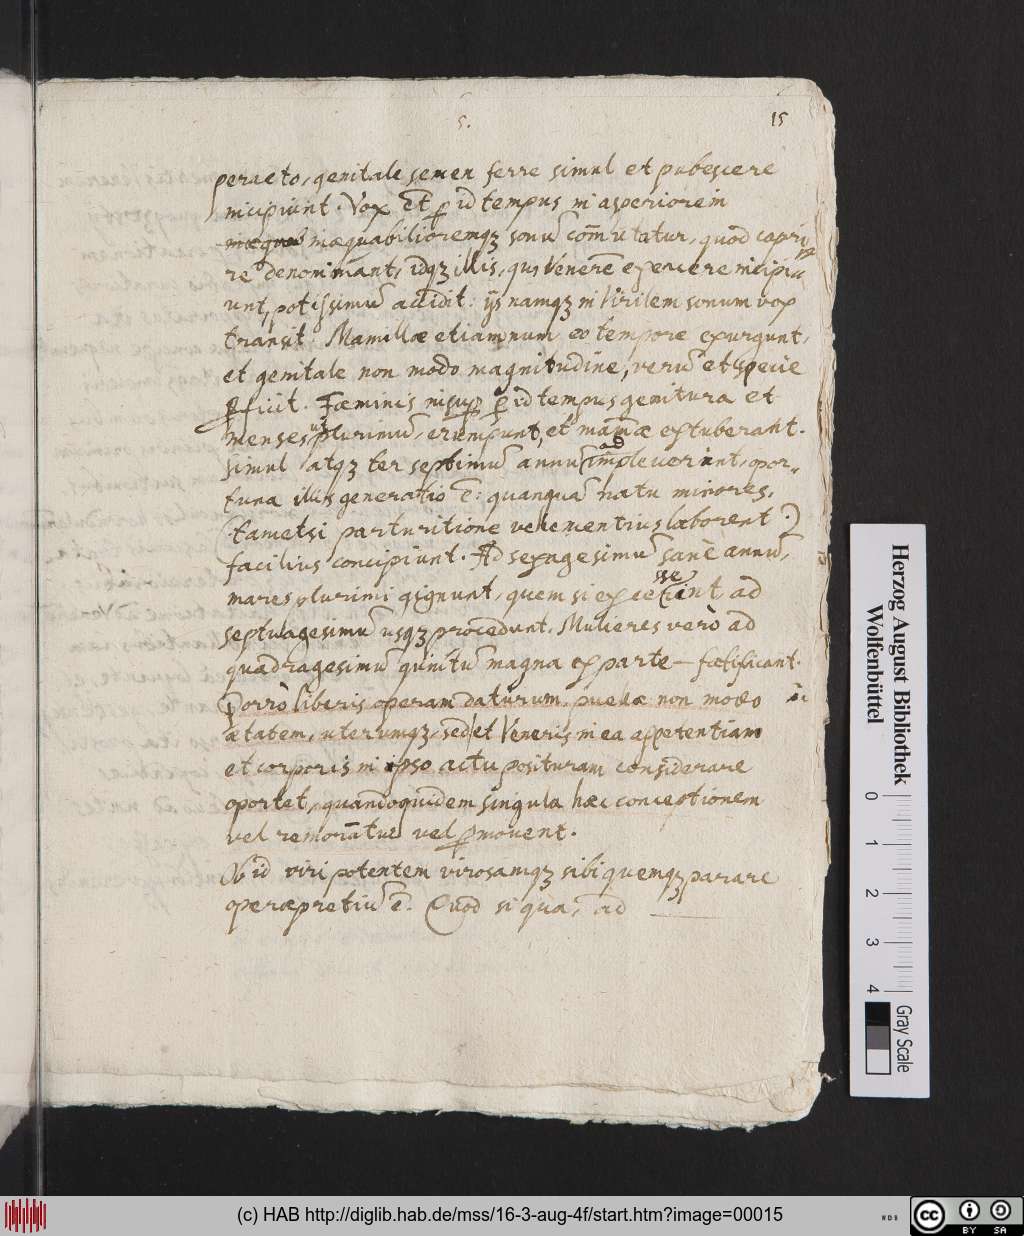 5.
15
peracto, genitale semen ferre simul et pubescere
incipiunt. Vox et̄ p̱ id tempus in asperiorem
inæquabilioremqꝫ sonū com̄utatur, quod capri
re denominant, idqꝫ illis, qui Venerē exercere incipi
unt, potissimū accidit: ijs namqꝫ in Virilem sonum vox
transit. Mamillæ etiamnum eo tempore exurgunt,
et genitale non modo magnitudine, verū et specie
ꝓficit. Fæminis p̱ id tempus genitura et
menses plurimū erumpunt, et mam̄æ extuberant.
simul atqꝫ ter septimū annū impleverint, opor-
tuna illis generatio ē: quanquā natu minores,
(tametsi parturitione vehementius laborent)
facilius concipiunt. Ad sexagesimū sanè annū,
mares plurimi gignunt, quem si excesserint ad
septuagesimū usqꝫ procedunt. Mulieres verò ad
quadragesimū quintū magna ex parte fœtificant.
Porrò liberis operam daturum, puellæ non modo
ætatem, uterumqꝫ, sed et Veneris in ea appetentiam
et corporis in ipso actu posituram considerare
oportet, quandoquidem singula hæc conceptionem
vel remorātur vel ꝓmovent.
Ob id viri potentem virosamqꝫ sibi quemqꝫ parare
operæpretiū ē. Quod si qua, ad
Herzog August Bibliothek
Wolfenbüttel
0 1 2 3 4
Gray Scale
(c) HAB http://diglib.hab.de/mss/16-3-aug-4f/start.htm?image=00015
cc BY SA